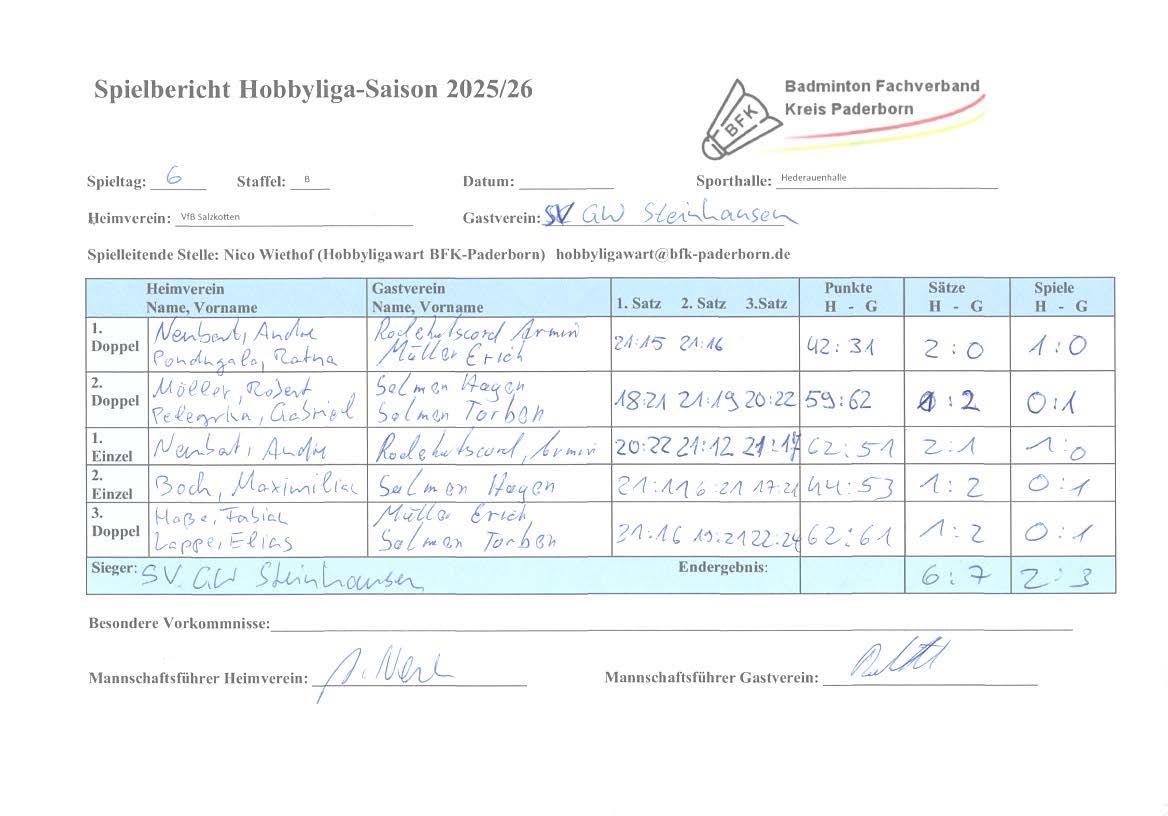 Spielbericht Hobbyliga-Saison 2025/26
Badminton Fachverband
Kreis Paderborn
BFK
Spieltag: 6 Staffel: B Datum: Sporthalle: Hederauenhalle
Heimverein: VfB Salzkotten Gastverein: SV GW Steinhausen
Spielleitende Stelle: Nico Wiethof (Hobbyligawart BFK-Paderborn) hobbyligawart@bfk-paderborn.de
Heimverein Gastverein Punkte Sätze Spiele
Name, Vorname Name, Vorname 1. Satz 2. Satz 3.Satz H - G H - G H - G
1. Doppel Neubart, Andre Rodehutscord Armin 21:15 21:16 42:31 2:0 1:0
Pondugala, Ratna Müller Erich
2. Doppel Möller, Robert Salmen Hagen 18:21 21:19 20:22 59:62 1:2 0:1
Gabriel Salmen Torben
1. Einzel Neubart, Andre Rodehutscord, Armin 20:22 21:12 21:17 62:51 2:1 1:0
2. Einzel Boch, Maximilian Salmen Hagen 21:11 6:21 17:21 44:53 1:2 0:1
3. Doppel Haße, Fabian Müller Erich 21:16 19:21 22:24 62:61 1:2 0:1
Lappe, Elias Salmen Torben
Sieger: SV. GW Steinhausen Endergebnis: 6:7 2:3
Besondere Vorkommnisse:
Mannschaftsführer Heimverein: Mannschaftsführer Gastverein: